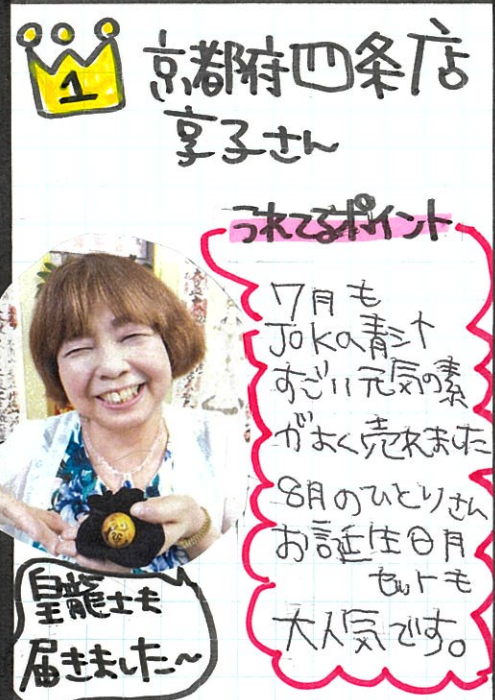 1
京都府四条店
享子さん
うれてるポイント
7月も
Joka青汁
すごい元気の素
がよく売れました
8月のひとりさん
お誕生日月
セットも
大人気です。
皇龍士も
届きました〜